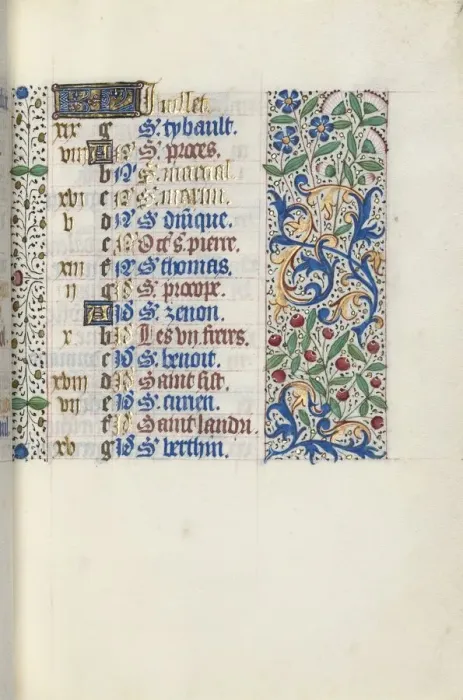 Juillet.
xix g S. tybault.
viii A S. proces.
b S. marcial
xvi c S. marin.
v d S. dñique.
e Oct s. pierre.
xiii f S. thomas.
ii g S. procope.
A S. zenon.
x b Les vii freres.
c S. benoit.
xviii d Saint
vii e S.
f Saint landri.
xv g S. berthin.